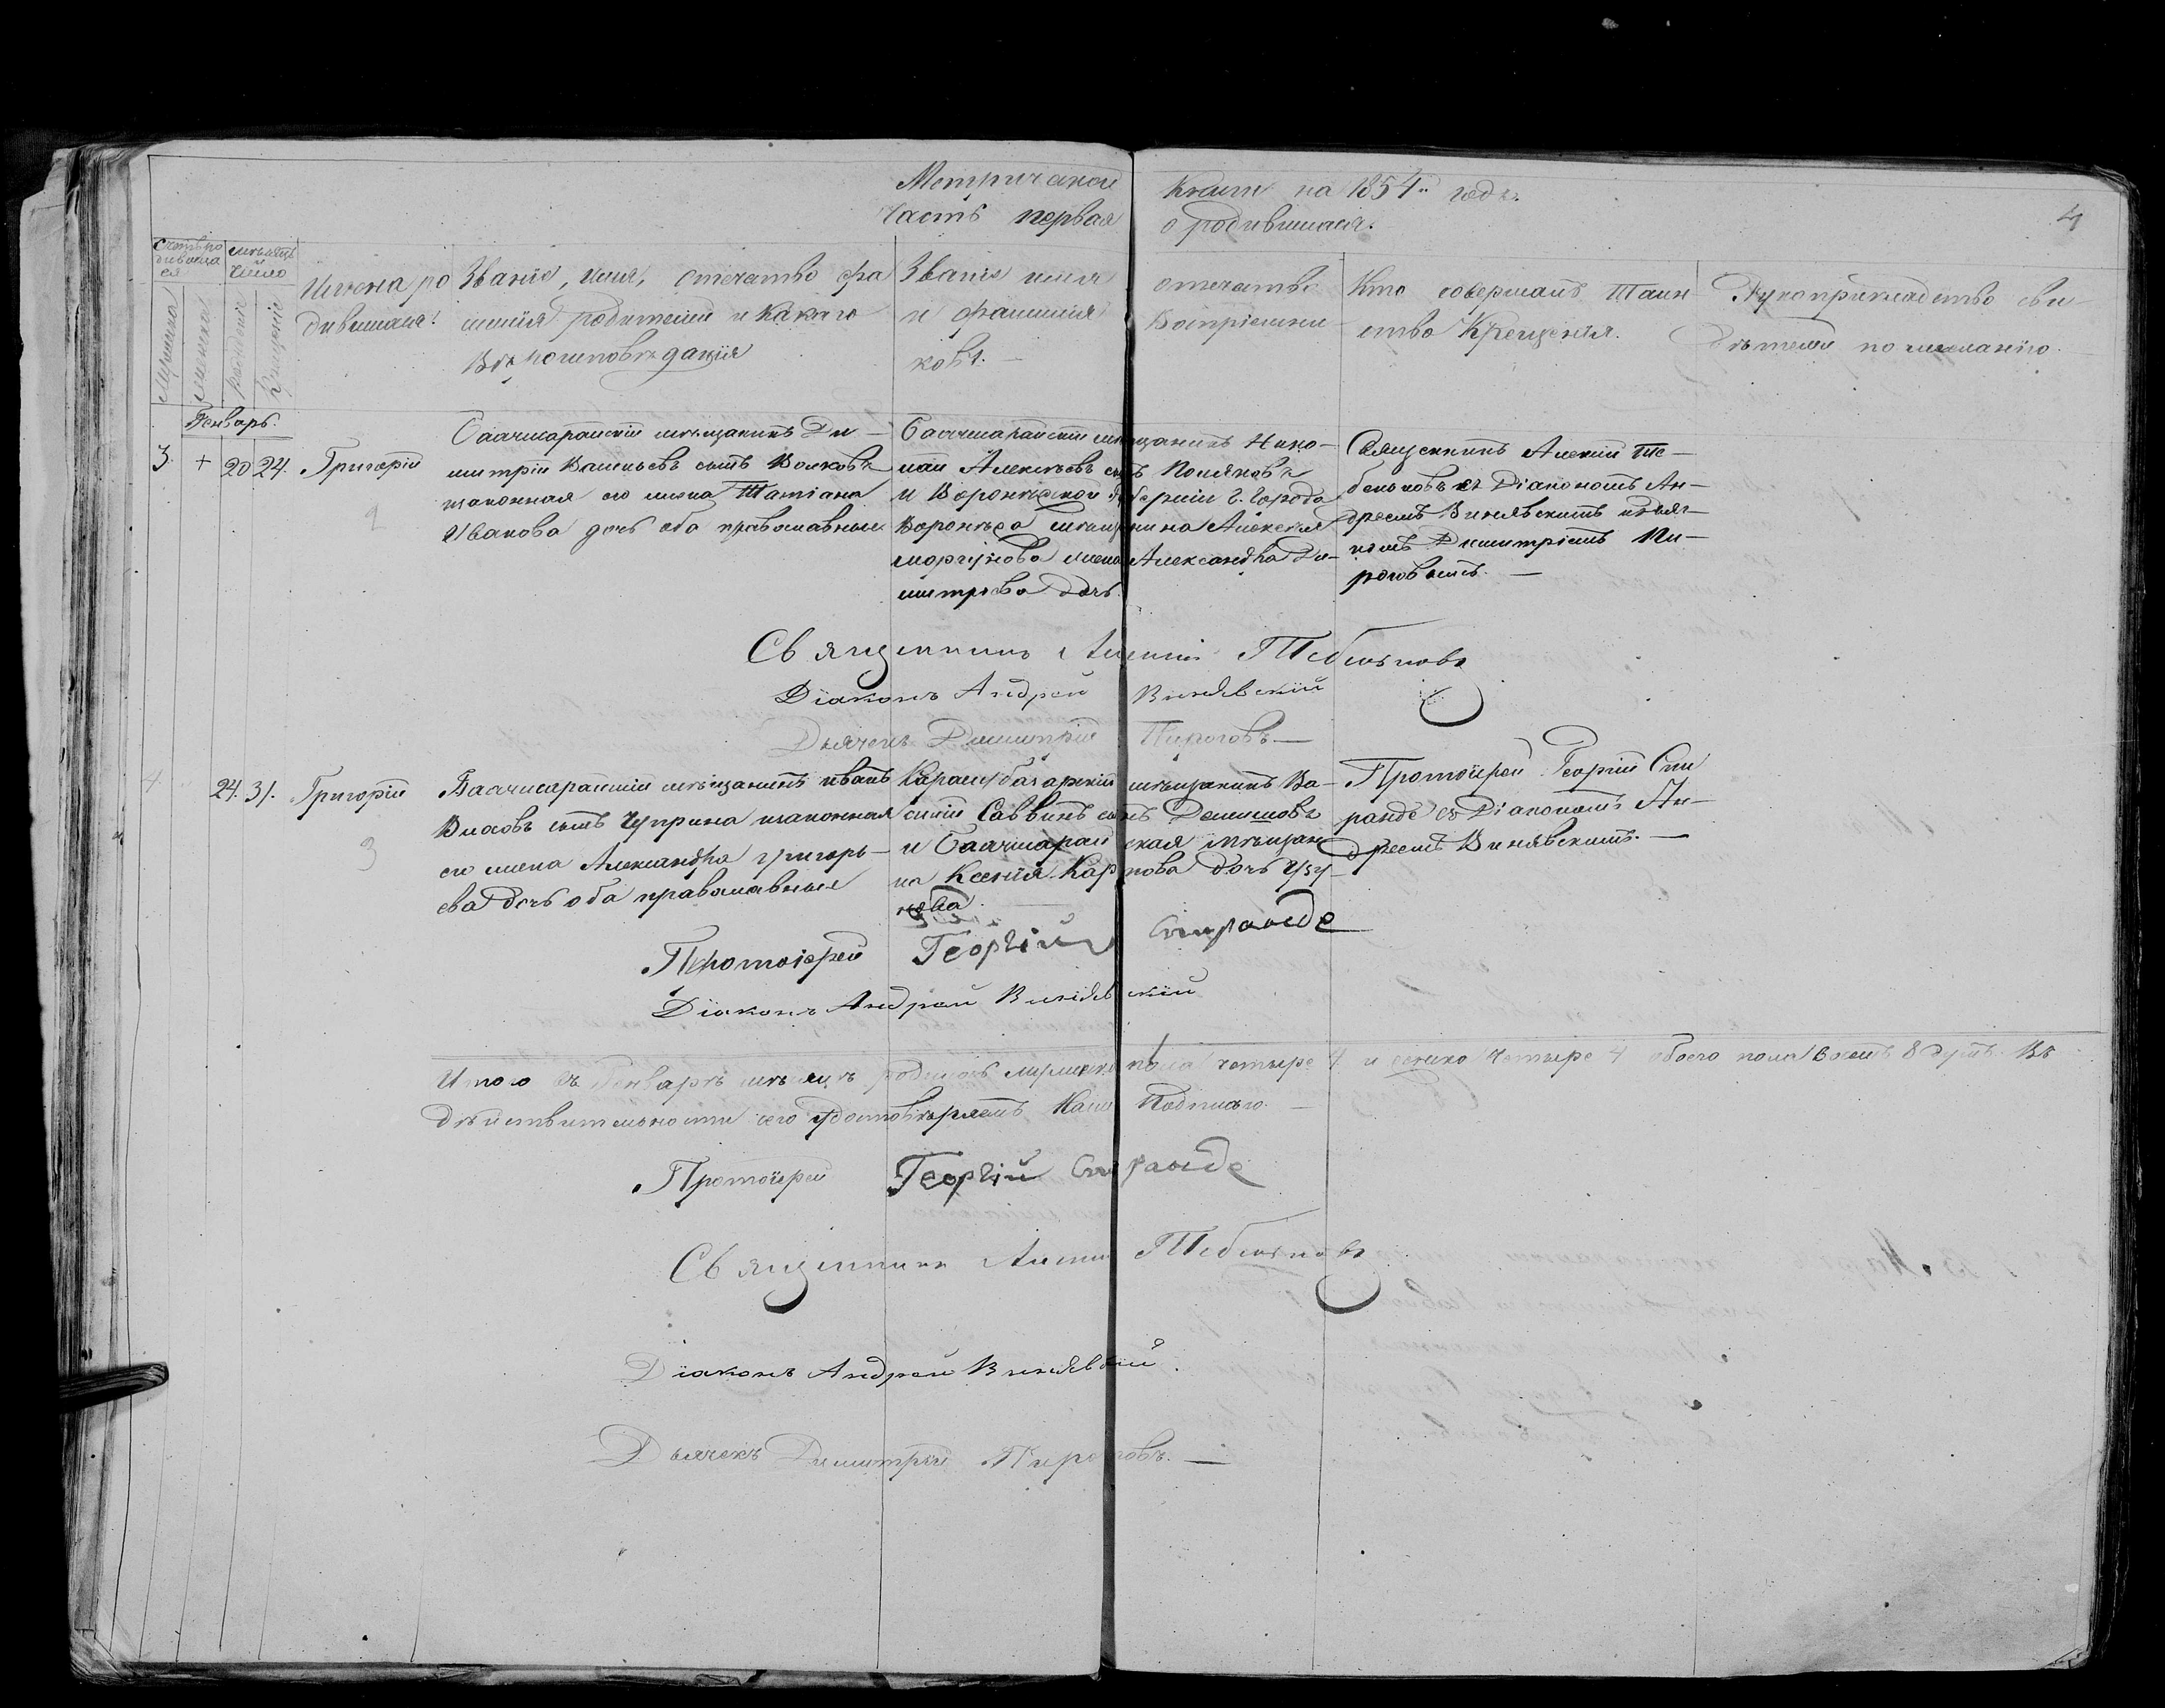 Метрической Книги на 1854й годъ.
Часть первая о родившихся.
4
Счетъ ро
дившиха
ся
мѣсяцъ
число
Мужеска
Женска
рожденіе
Крещеніе
Имена ро
дившихся.
Званіе, имя, отечество фа
милія родителей и какого
Вѣроисповѣданія
Званіе имя отечество
и фамилія Воспріемни
ковъ.
Кто совершалъ Таин
ство Крещенія.
Рукоприкладство сви
дѣтелей по желанію.
Генварь.
3. + 20 24. Григорій
Бахчисарайскій мѣщанинъ Ди-
митрій Васильевъ сынъ Волковъ
законная его жена Татіана
Иванова дочь оба православные
Бахчисарайскій мѣщанинъ Нико-
лай Алексѣевъ сынъ Поляковъ
и Воронежской губерніи г. Города
Воронежа мѣщанина Алексѣя
жена Александра Ди-
митріева дочь.
Священникъ Алексій Те-
бельковъ съ Діакономъ Ан-
дреемъ Винявскимъ и дьяч-
комъ Димитріемъ Пи-
роговымъ.
Священникъ Алексій
Діаконъ Андрей Винявскій
Дьячекъ Димитрій Пироговъ.
4. 24. 31. Григорій
Бахчисарайскій мѣщанинъ Иванъ
Власовъ сынъ Чуприна законная
его жена Александра Григорь-
ева дочь оба православные
Карасубазарскій мѣщанинъ Ва-
силій Саввинъ сынъ Демишовъ
и Бахчисарайская мѣщан
ка Ксенія Карпова дочь Узу
нова.
Протоіерей Георгій Спи
ранде съ Діакономъ Ан-
дреемъ Винявскимъ.
Протоіерей Георгій Спиранде
Діаконъ Андрей Винявскій
Итого въ Генварѣ мѣсяцѣ родилось мужеска пола четыре 4 и женска четыре 4 обоего пола восемь 8 душъ. Въ
дѣйствительности чего удостовѣряемъ Нашею Подписью.
Протоіерей Георгій Спиранде
Священникъ Алексій
Діаконъ Андрей Винявскій.
Дьячекъ Димитрій Пироговъ.